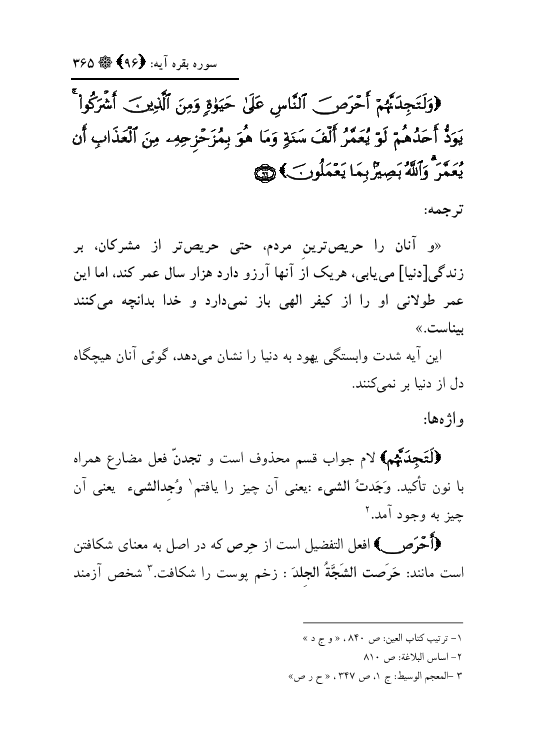 سوره بقره آیه: ﴿۹۶﴾ ۳۶۵
﴿وَلَتَجِدَنَّهُمْ أَحْرَصَ النَّاسِ عَلَىٰ حَيَوٰةٍ وَمِنَ الَّذِينَ أَشْرَكُوا۟ ۚ
يَوَدُّ أَحَدُهُمْ لَوْ يُعَمَّرُ أَلْفَ سَنَةٍ وَمَا هُوَ بِمُزَحْزِحِهِۦ مِنَ الْعَذَابِ أَن
يُعَمَّرَ ۗ وَاللَّهُ بَصِيرٌۢ بِمَا يَعْمَلُونَ﴾ ۹۶
ترجمه:
«و آنان را حریص‌ترینِ مردم، حتی حریص‌تر از مشرکان، بر
زندگی[دنیا] می‌یابی، هریک از آنها آرزو دارد هزار سال عمر کند، اما این
عمر طولانی او را از کیفر الهی باز نمی‌دارد و خدا بدانچه می‌کنند
بیناست.»
این آیه شدت وابستگی یهود به دنیا را نشان می‌دهد، گوئی آنان هیچگاه
دل از دنیا بر نمی‌کنند.
واژه‌ها:
﴿لَتَجِدَنَّهُم﴾ لام جواب قسم محذوف است و تجدنّ فعل مضارع همراه
با نون تأکید. وَجَدتُ الشیء :یعنی آن چیز را یافتم۱ وُجِدالشیء یعنی آن
چیز به وجود آمد.۲
﴿أَحْرَصَ﴾ افعل التفضیل است از حِرص که در اصل به معنای شکافتن
است مانند: حَرَصت الشَجَّةُ الجِلدَ : زخم پوست را شکافت.۳ شخص آزمند
۱- ترتیب کتاب العین: ص ۸۴۰ ، « و ج د »
۲- اساس البلاغة: ص ۸۱۰
۳ -المعجم الوسیط: ج ۱، ص ۳۴۷ ، « ح ر ص»